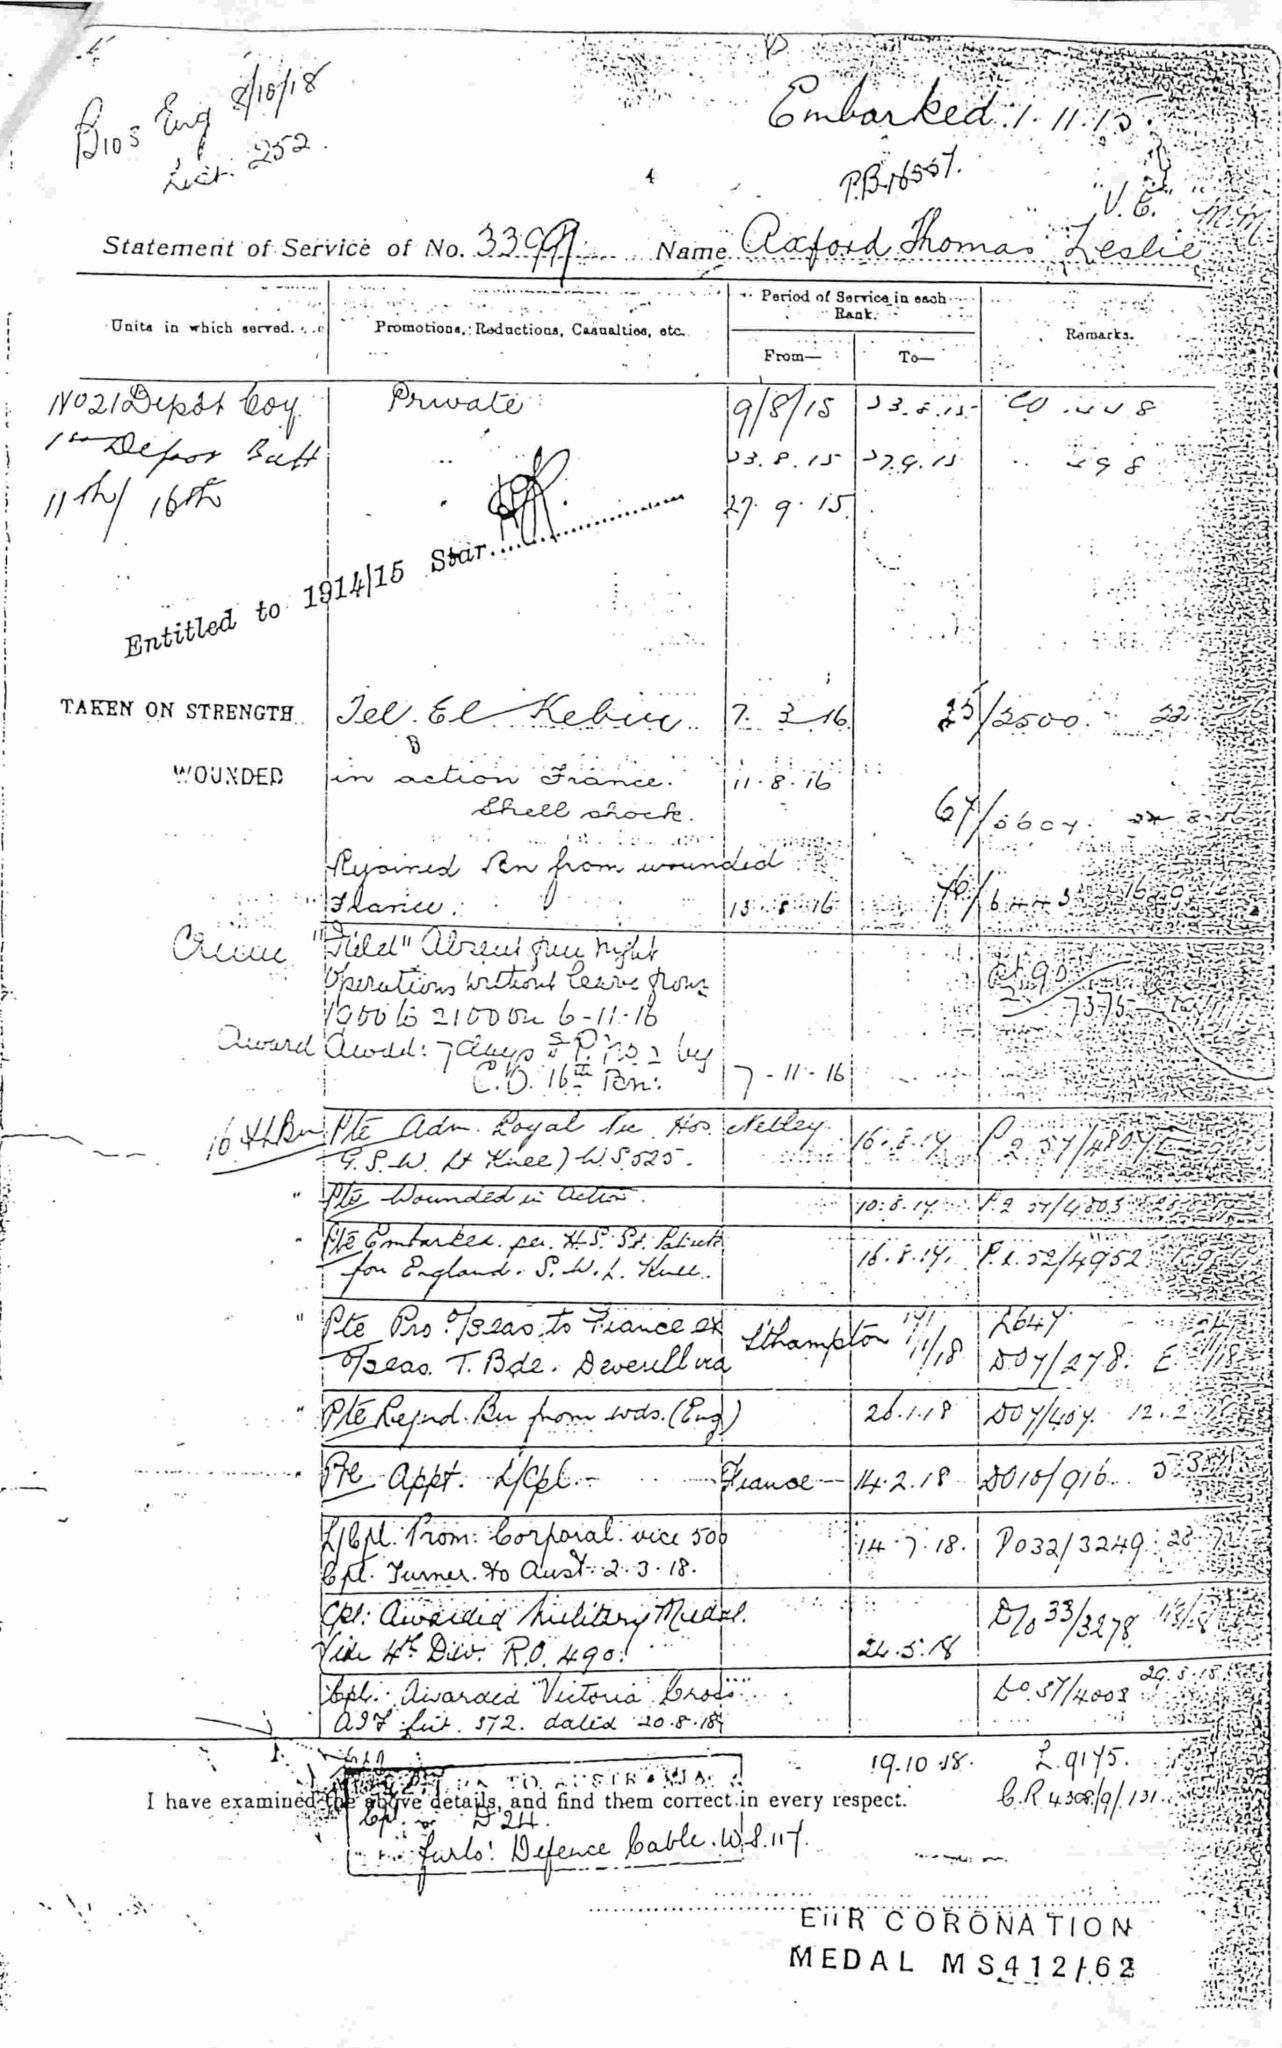 B103 Eng 8/10/18
List. 252.
Embarked 1.11.15
P.B.16557.
"V.C." M.M.
Statement of Service of No. 3399 Name Axford Thomas Leslie
Units in which served. Promotions, Reductions, Casualties, etc. Period of Service in each Rank. Remarks.
From— To—
No 21 Depôt Coy Private 9/8/15 23.8.15
1st Depot Batt " 23.8.15 27.9.15
11th/16th " 27.9.15
Entitled to 1914/15 Star
TAKEN ON STRENGTH Tel. El Kebir 7.3.16 25/2500
WOUNDED in action France. 11.8.16
Shell shock. 67/5604
Rejoined Bn from wounded
France. 13.8.16
Crime "Field" Absent from night
Operations without leave from
1900 to 2100 on 6-11-16
Award Award: 7 days F.P. No 2 by
C.O. 16th Bn. 7-11-16
16th Bn Pte Adm. Royal Vic. Hos. Netley 16.8.17
G.S.W. (Lt Knee) W.S.525.
" Pte Wounded in Action. 10.8.17
" Pte Embarked per H.S. St. Patrick
for England. S.W.L. Knee. 16.8.17. 52/4952
" Pte Pro. O/Seas to France ex L647
O/seas. T. Bde. Deverill via S'thampton 1/18 DO7/278.
" Pte Rejnd. Bn from wds. (Eng) 26.1.18 DO7/407. 12.2
" Pte Appt. L/Cpl. France 14.2.18 DO10/916.
L/Cpl. Prom: Corporal vice 500 14.7.18. DO32/3249
Cpl. Turner. to Aust. 2.3.18.
Cpl: Awarded Military Medal. D/O 33/3278
Vide 4th Div. R.O. 490. 24.5.18
Cpl. Awarded "Victoria Cross" DO.37/4003
AIF List. 372. dated 20.8.18
19.10.18. L.9175.
TO AUSTRALIA
I have examined the above details, and find them correct in every respect. C.R 4308/9/131
D 24.
furlo! Defence Cable. W.S.117.
EIIR CORONATION
MEDAL MS412/62